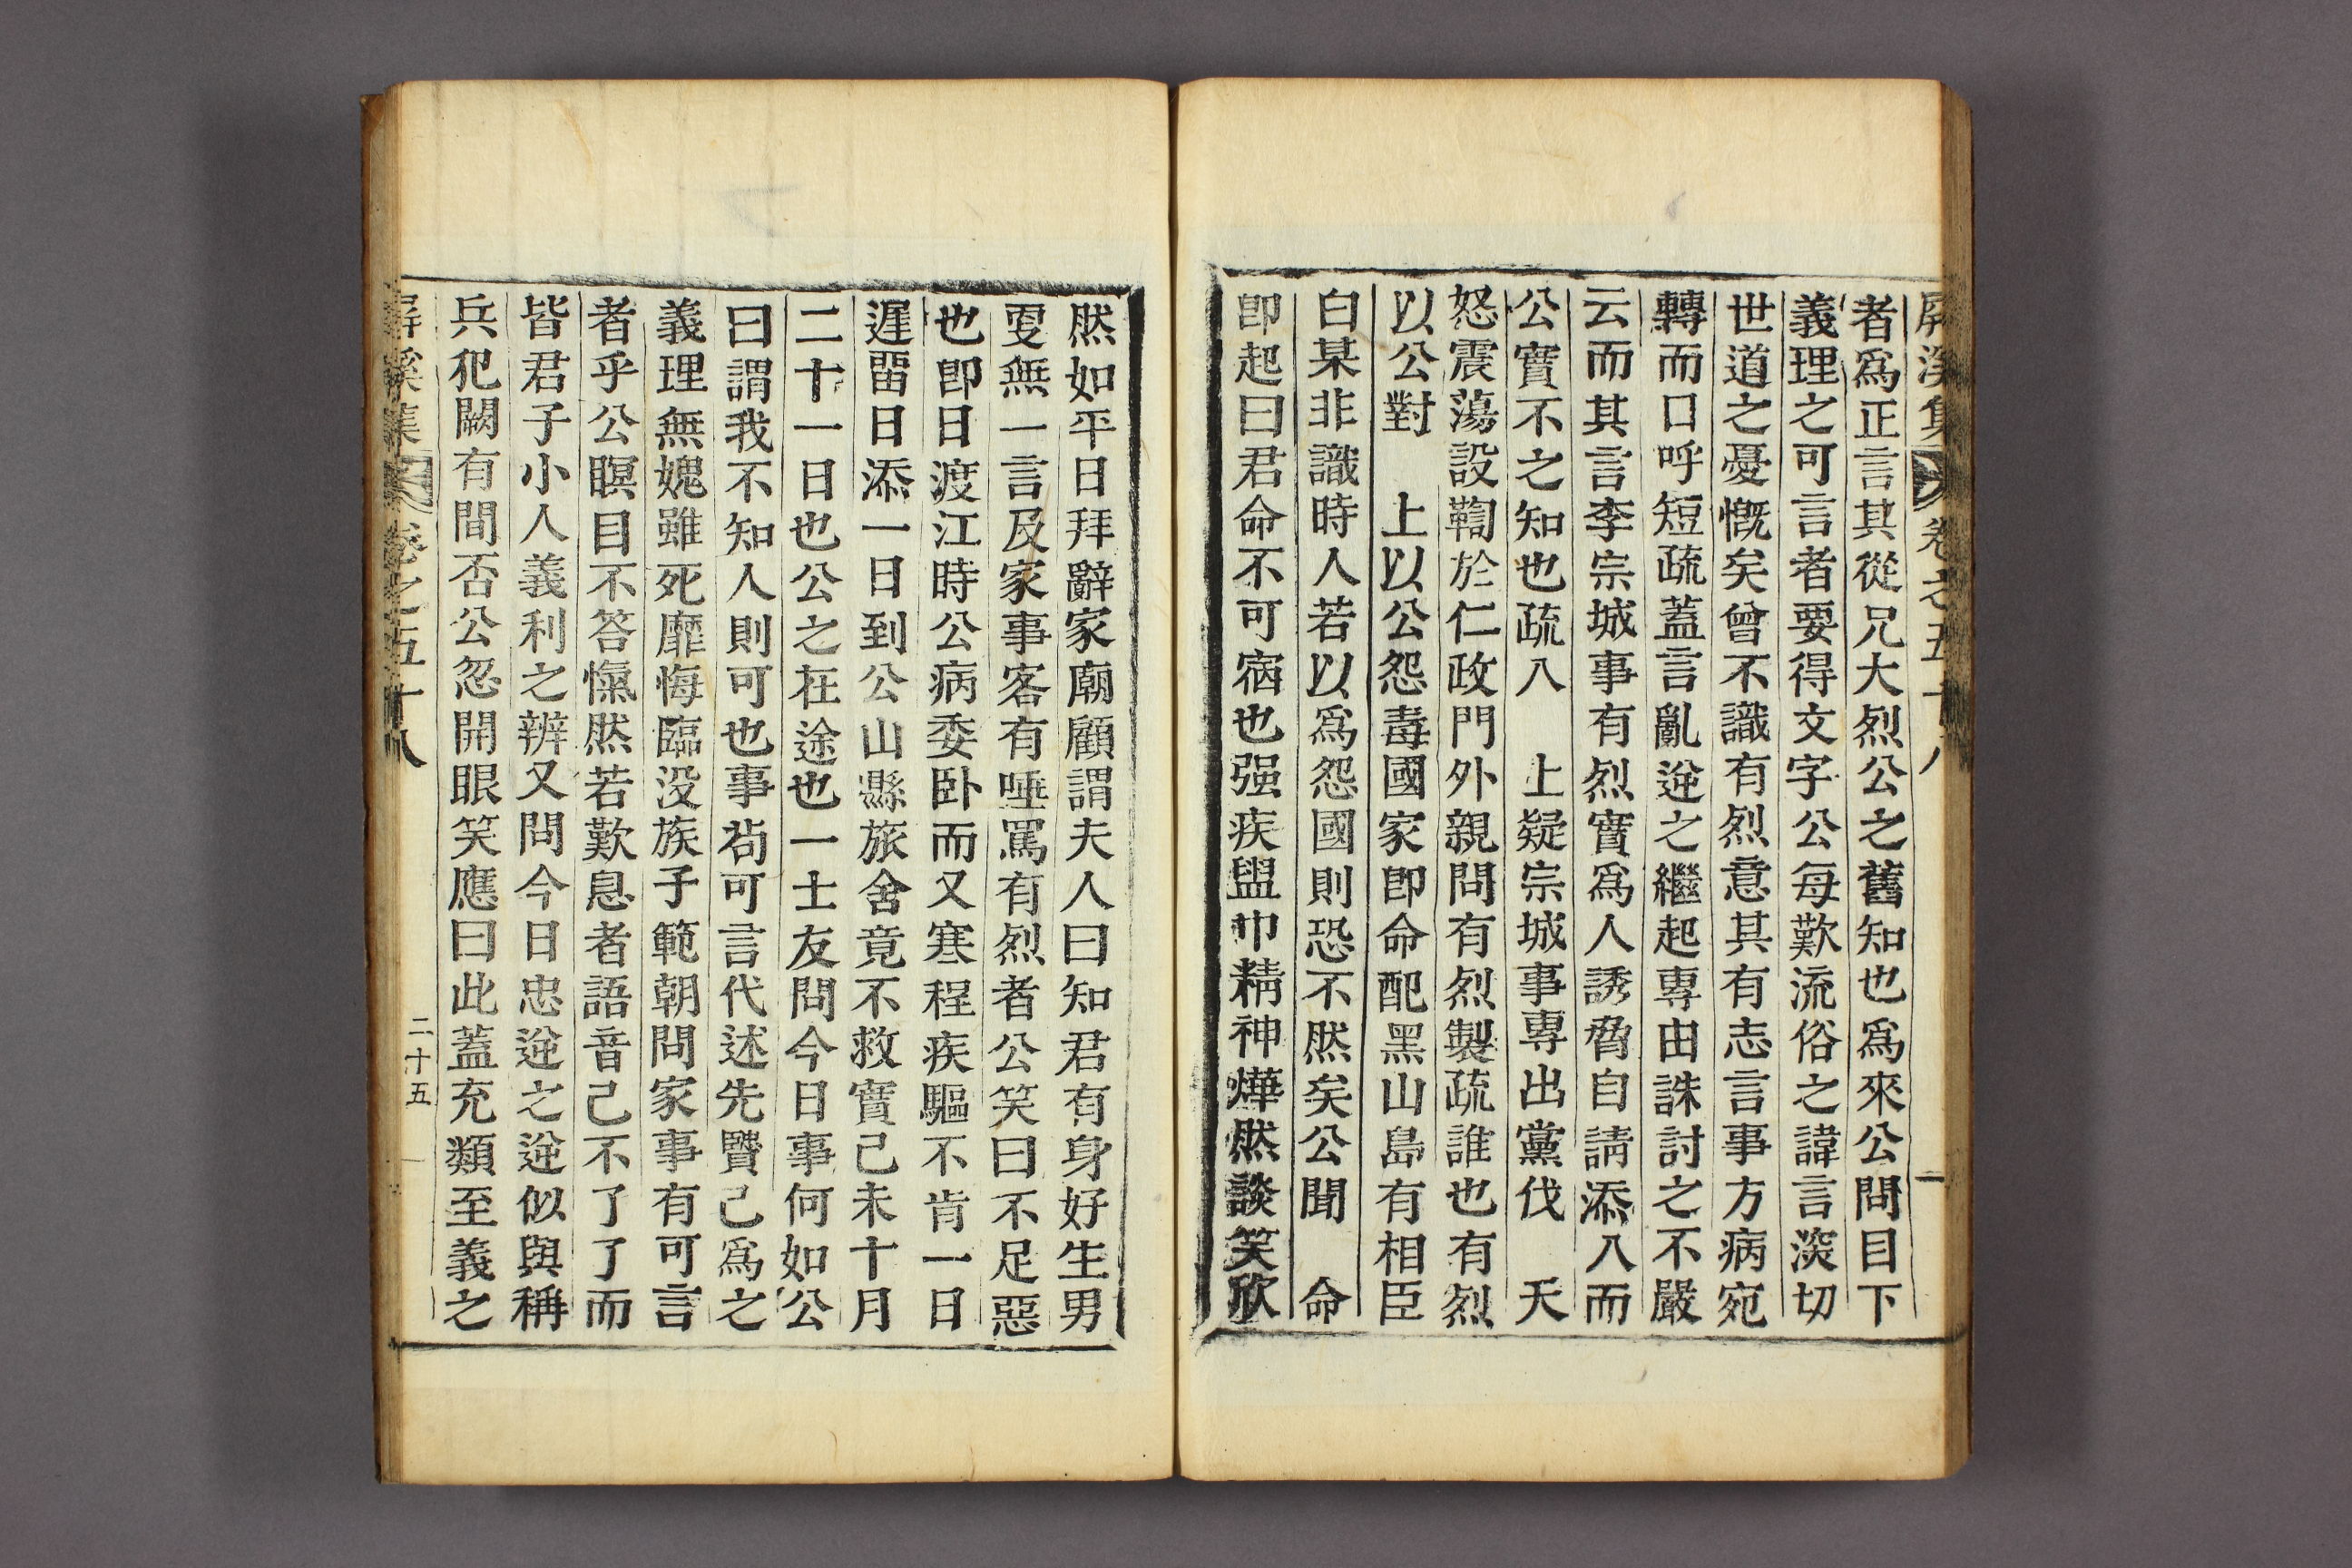 屏溪集 卷之五十八
者爲正言其從兄大烈公之舊知也爲來公問目下
義理之可言者要得文字公每歎流俗之諱言深切
世道之憂慨矣曾不識有烈意其有志言事方病宛
轉而口呼短疏蓋言亂逆之繼起專由誅討之不嚴
云而其言李宗城事有烈實爲人誘脅自請添入而
公實不之知也疏入 上疑宗城事專出黨伐 天
怒震蕩設鞫於仁政門外親問有烈製疏誰也有烈
以公對 上以公怨毒國家卽命配黑山島有相臣
白某非識時人若以爲怨國則恐不然矣公聞 命
卽起曰君命不可宿也强疾盥巾精神燁然談笑欣
然如平日拜辭家廟顧謂夫人曰知君有身好生男
更無一言及家事客有唾罵有烈者公笑曰不足惡
也卽日渡江時公病委卧而又寒程疾驅不肯一日
遲留日添一日到公山縣旅舍竟不救實己未十月
二十一日也公之在途也一士友問今日事何如公
曰謂我不知人則可也事苟可言代述先賢已爲之
義理無媿雖死靡悔臨沒族子範朝問家事有可言
者乎公瞑目不答愾然若歎息者語音已不了了而
皆君子小人義利之辨又問今日忠逆之逆似與稱
兵犯闕有間否公忽開眼笑應曰此蓋充類至義之
屏溪集 卷之五十八 二十五